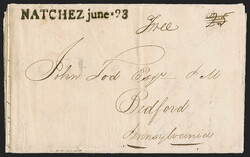 NATCHEZ june • 23
Free
John Tod Esqr P M
Bedford
Pennsylvania